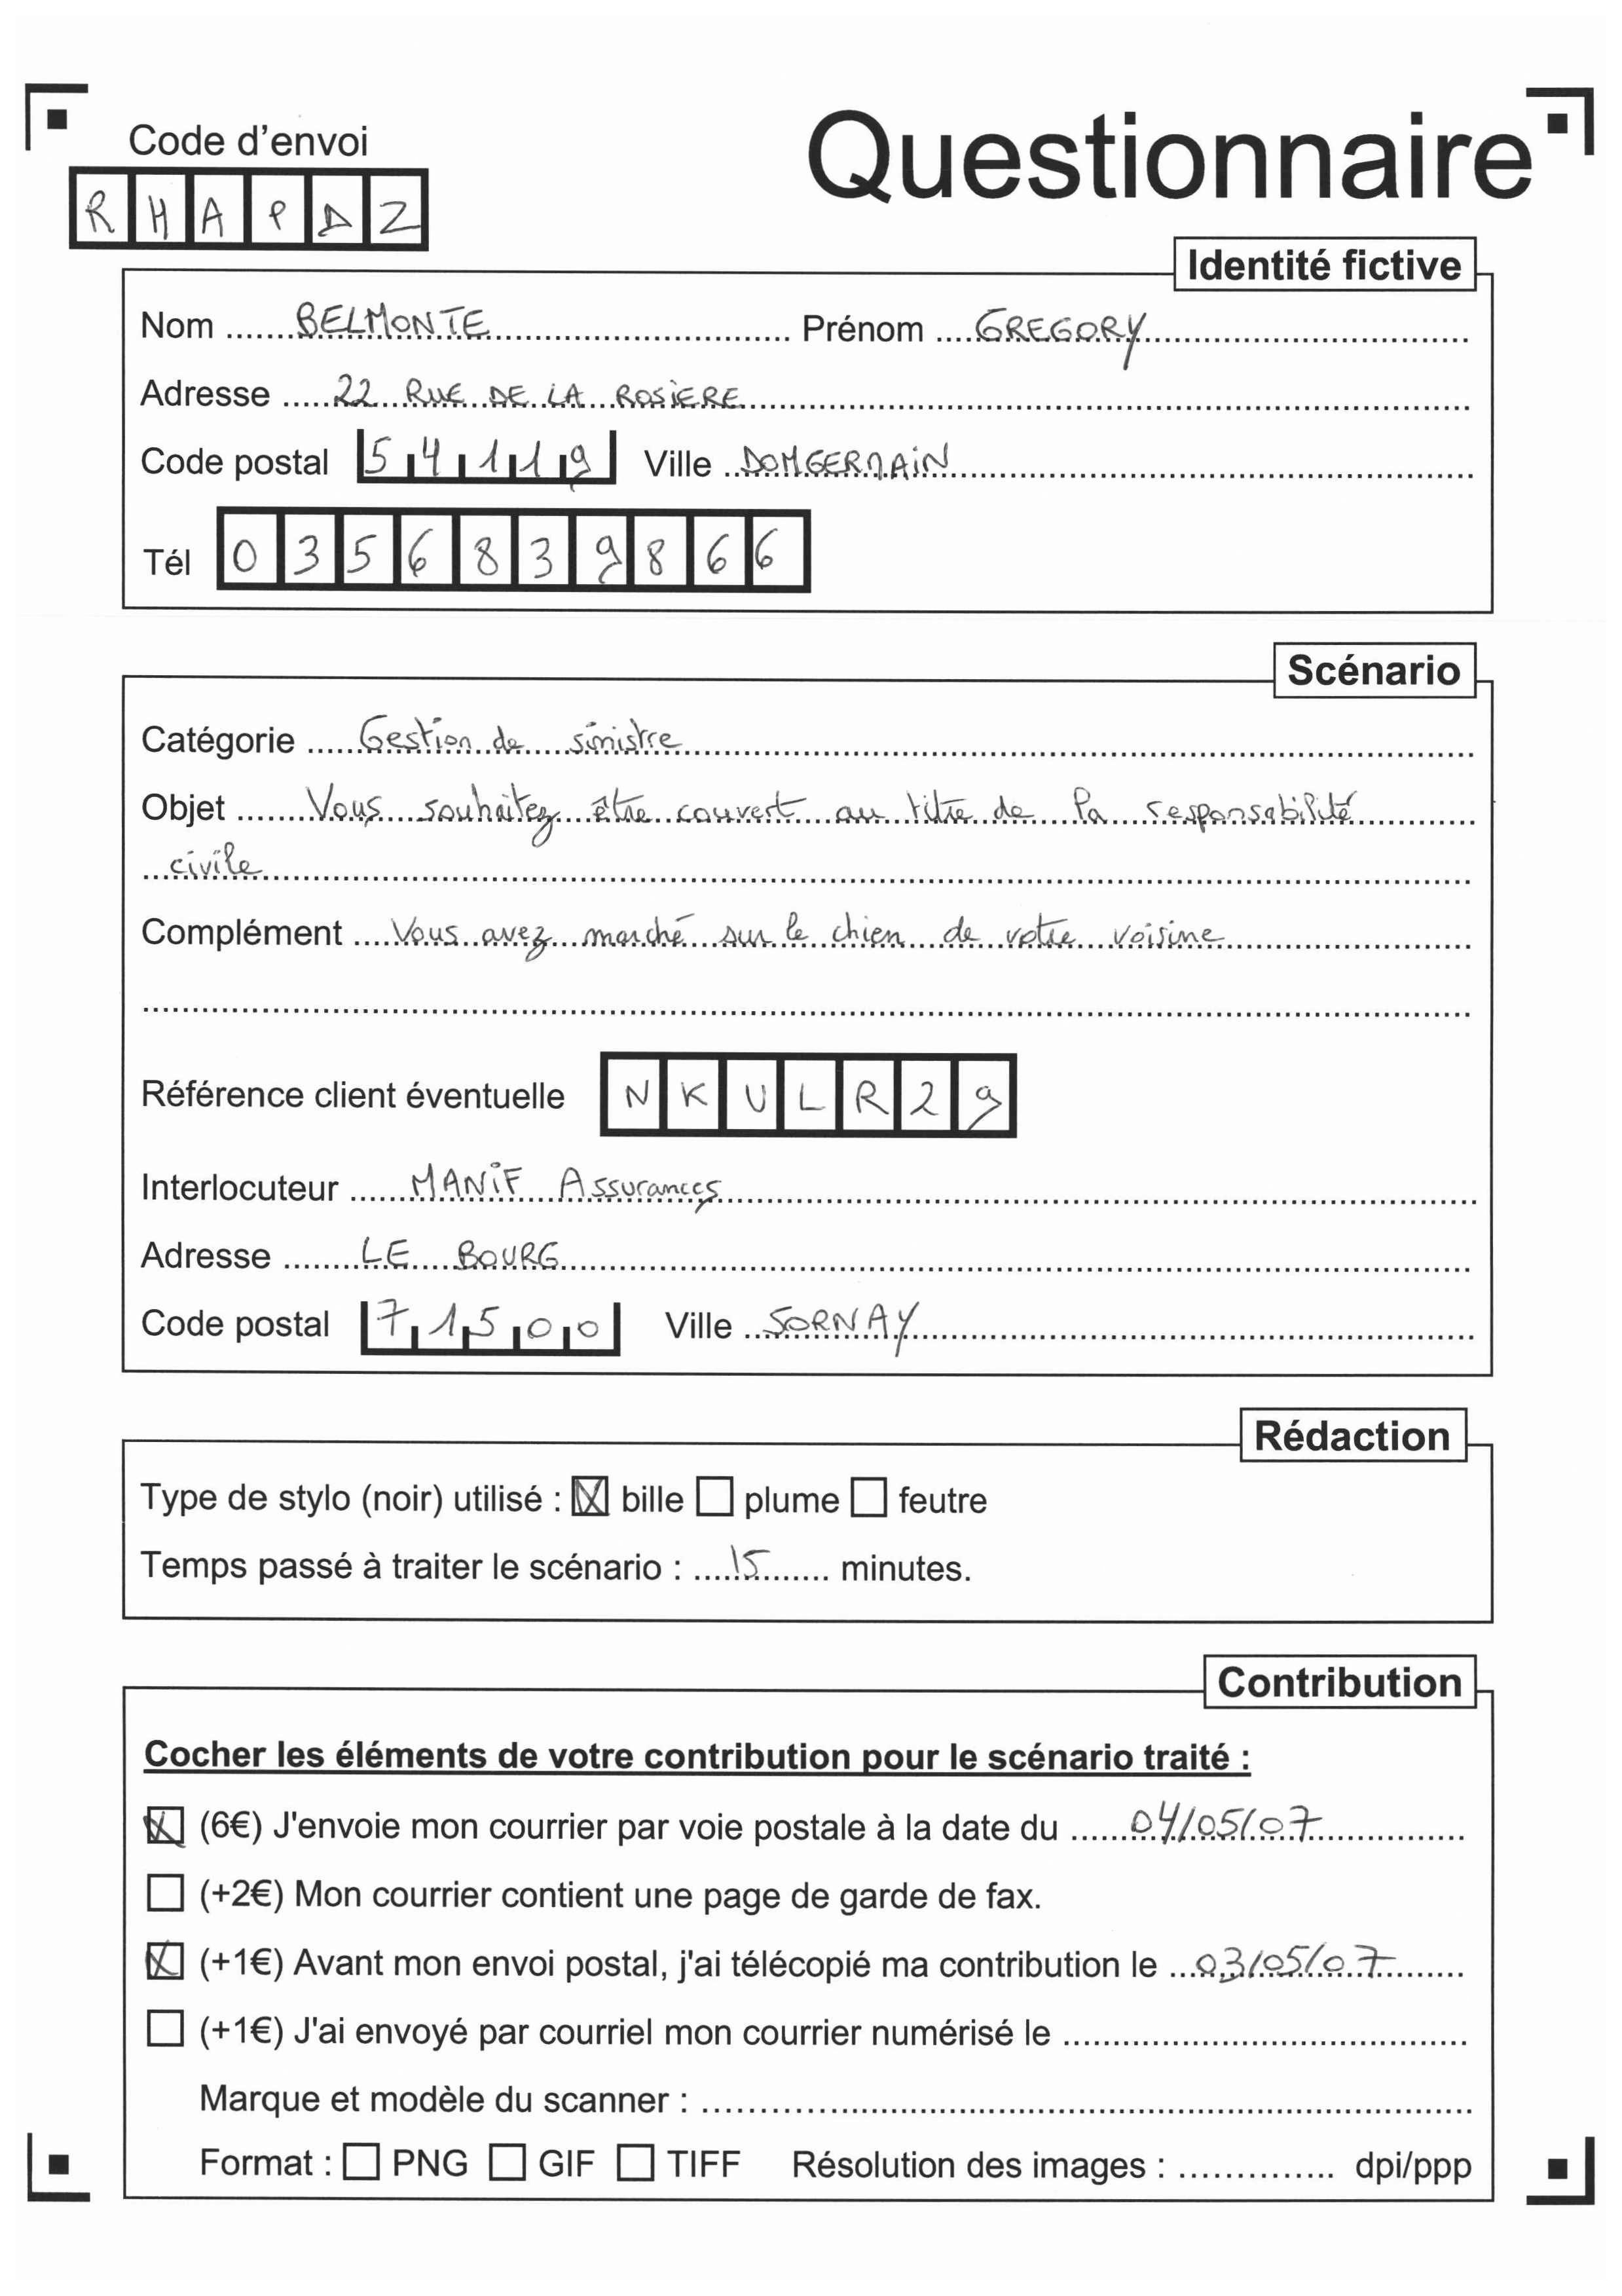 Code d'envoi
Questionnaire
RHAPDZ
Identité fictive
Nom ...... BELMONTE ...... Prénom .... GREGORY ......
Adresse ..... 22 RUE DE LA ROSIERE ......
Code postal 54119 Ville .. DOMGERMAIN ......
Tél 0356839866
Scénario
Catégorie ..... Gestion de sinistre ......
Objet ...... Vous souhaitez être couvert au titre de la responsabilité
civile ......
Complément .... Vous avez marché sur le chien de votre voisine ......
Référence client éventuelle NKULR29
Interlocuteur ...... MANiF Assurances ......
Adresse ...... LE BOURG ......
Code postal 71500 Ville .. SORNAY ......
Rédaction
Type de stylo (noir) utilisé : ☒ bille ☐ plume ☐ feutre
Temps passé à traiter le scénario : .... 15 ...... minutes.
Contribution
Cocher les éléments de votre contribution pour le scénario traité :
☒ (6€) J'envoie mon courrier par voie postale à la date du ...... 04/05/07 ......
☐ (+2€) Mon courrier contient une page de garde de fax.
☒ (+1€) Avant mon envoi postal, j'ai télécopié ma contribution le ... 03/05/07 ......
☐ (+1€) J'ai envoyé par courriel mon courrier numérisé le ......
Marque et modèle du scanner : ......
Format : ☐ PNG ☐ GIF ☐ TIFF Résolution des images : .............. dpi/ppp